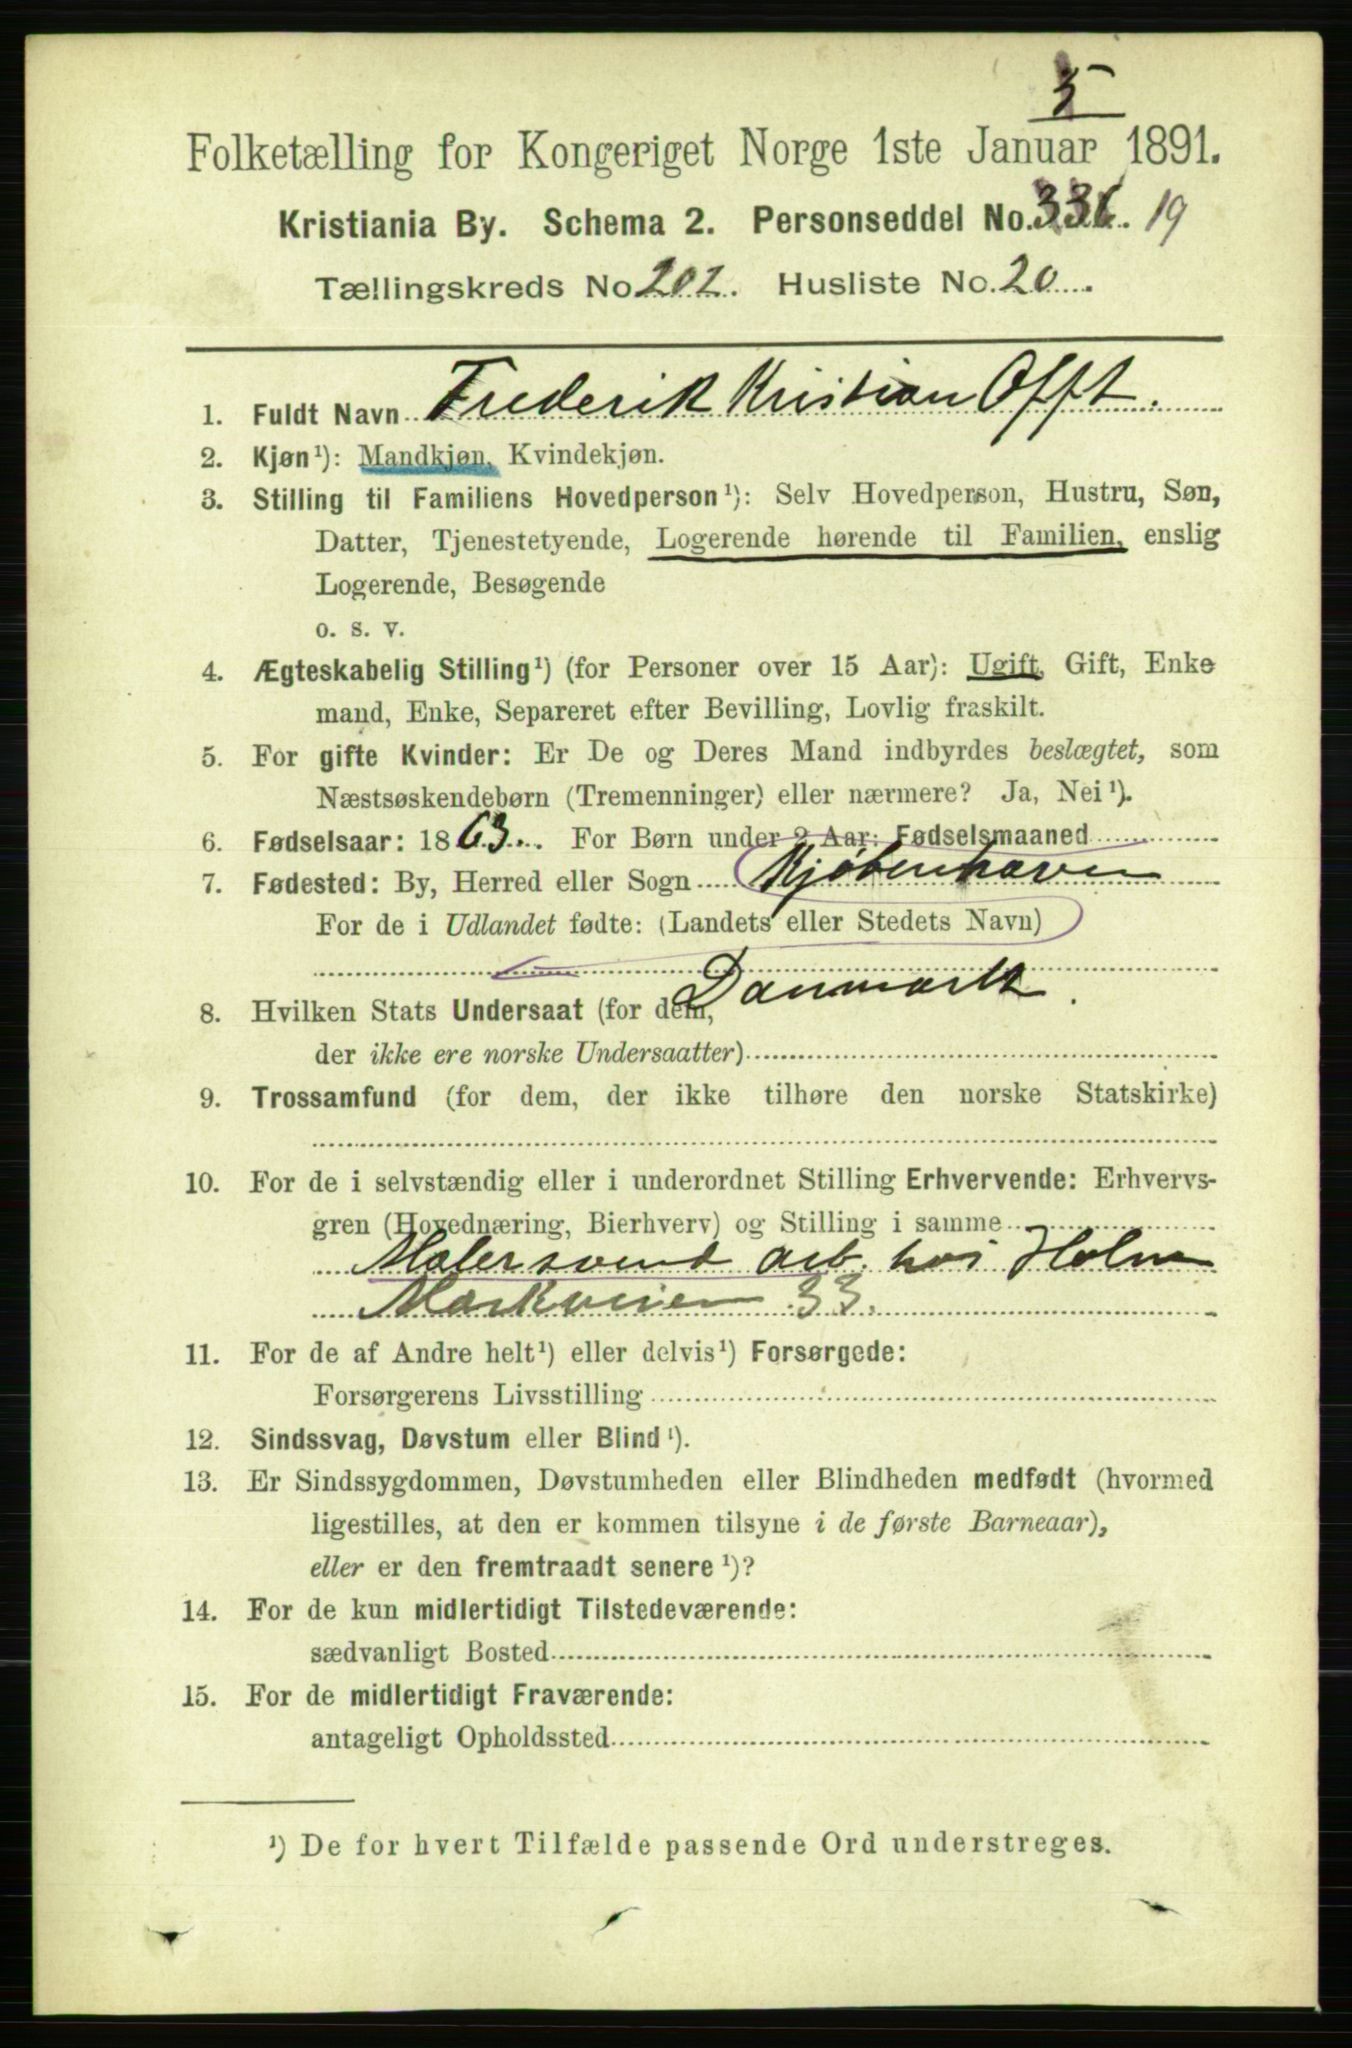 5
Folketælling for Kongeriget Norge 1ste Januar 1891.
Kristiania By. Schema 2. Personseddel No. 336. 19
Tællingskreds No 202. Husliste No. 20.
1. Fuldt Navn Frederik Kristian Offt.
2. Kjøn¹): Mandkjøn, Kvindekjøn.
3. Stilling til Familiens Hovedperson¹): Selv Hovedperson, Hustru, Søn,
Datter, Tjenestetyende, Logerende hørende til Familien, enslig
Logerende, Besøgende
o. s. v.
4. Ægteskabelig Stilling¹) (for Personer over 15 Aar): Ugift, Gift, Enke
mand, Enke, Separeret efter Bevilling, Lovlig fraskilt.
5. For gifte Kvinder: Er De og Deres Mand indbyrdes beslægtet, som
Næstsøskendebørn (Tremenninger) eller nærmere? Ja, Nei¹).
6. Fødselsaar: 1863. For Børn under 2 Aar: Fødselsmaaned
7. Fødested: By, Herred eller Sogn Kjøbenhaven
For de i Udlandet fødte: (Landets eller Stedets Navn)
Danmark.
8. Hvilken Stats Undersaat (for dem,
der ikke ere norske Undersaatter)
9. Trossamfund (for dem, der ikke tilhøre den norske Statskirke)
10. For de i selvstændig eller i underordnet Stilling Erhvervende: Erhvervs-
gren (Hovednæring, Bierhverv) og Stilling i samme
Malersvend arb. hos Holm
Markveien 33.
11. For de af Andre helt¹) eller delvis¹) Forsørgede:
Forsørgerens Livsstilling
12. Sindssvag, Døvstum eller Blind¹).
13. Er Sindssygdommen, Døvstumheden eller Blindheden medfødt (hvormed
ligestilles, at den er kommen tilsyne i de første Barneaar),
eller er den fremtraadt senere¹)?
14. For de kun midlertidigt Tilstedeværende:
sædvanligt Bosted
15. For de midlertidigt Fraværende:
antageligt Opholdssted
¹) De for hvert Tilfælde passende Ord understreges.